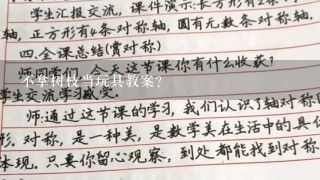 学生汇报交流, 课件演示:长方形有2条
轴, 正方形有4条对称轴, 圆有无数条对称轴.
四.全课总结(赏对称)
不拿树枝当玩具教案?
今天这节课你有什么收获?
学生交流学习感受.
师:通过这节课的学习, 我们认识了轴对称
形. 对称, 是一种美, 是数学美在生活中的具
体现. 只要你留心观察, 到处都能找到对称